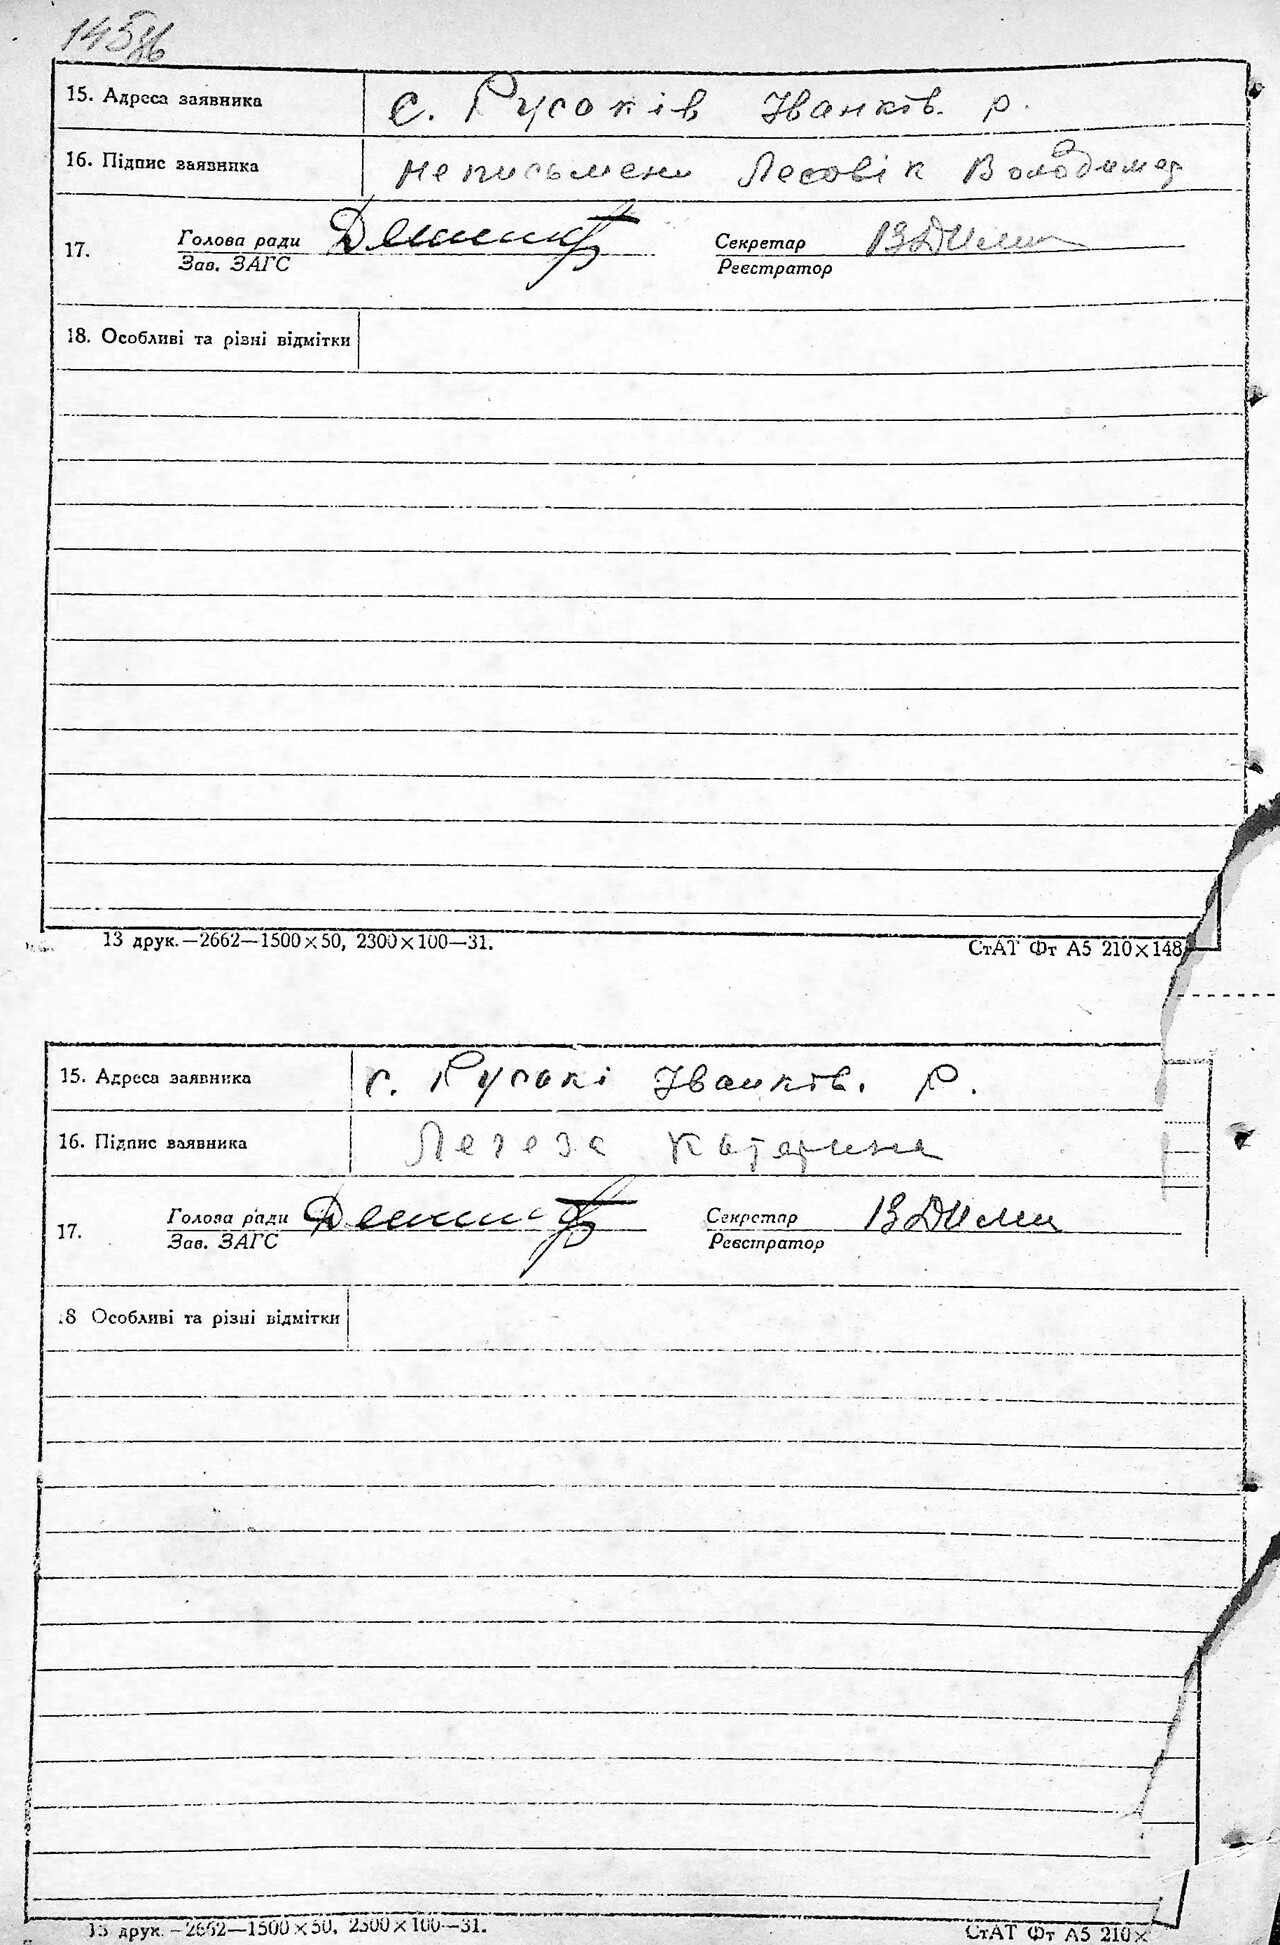 145зв
15. Адреса заявника с. Русаків Іванків. р.
16. Підпис заявника неписьмени Лесовік Володимер
17. Голова ради Секретар
Зав. ЗАГС Реєстратор
18. Особливі та різні відмітки
13 друк.—2662—1500×50, 2300×100—31. СтАТ Фт А5 210×148
15. Адреса заявника с. Русакі Іванків. р.
16. Підпис заявника Легеза Катерина
17. Голова ради Секретар
Зав. ЗАГС Реєстратор
18 Особливі та різні відмітки
13 друк.—2662—1500×50, 2300×100—31. СтАТ Фт А5 210×